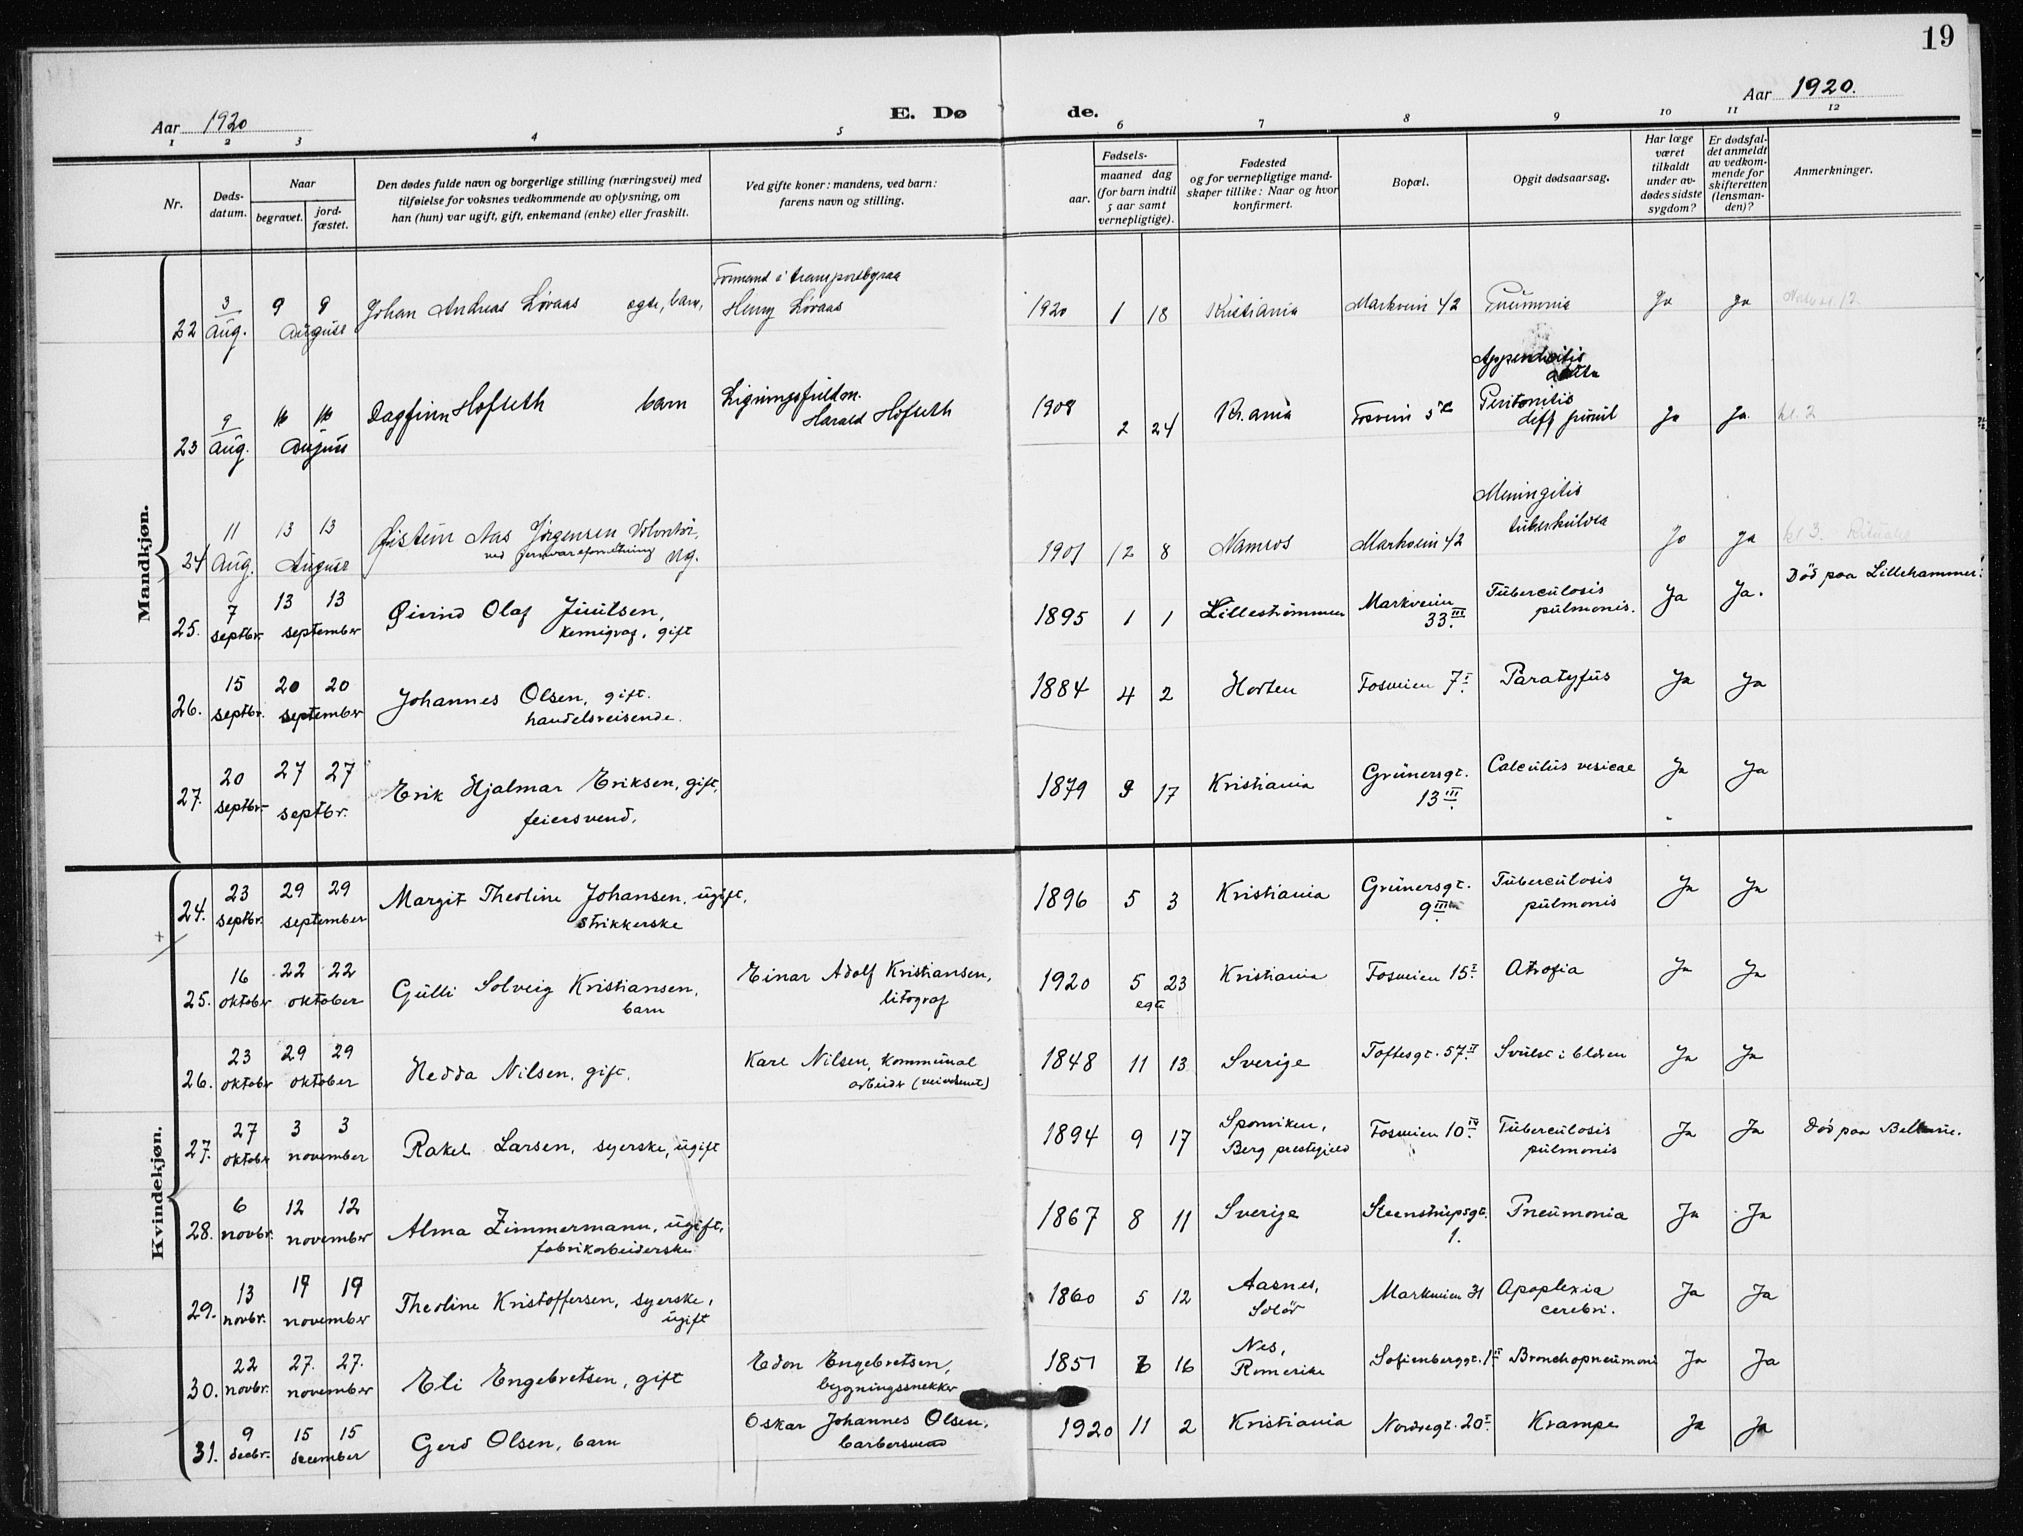 19
Aar 1920
E. Døde.
Aar 1920.
1 2 3 4 5 6 7 8 9 10 11 12
Nr.
Døds-datum.
Naar
begravet.
jord-fæstet.
Den dødes fulde navn og borgerlige stilling (næringsvei) med
tilføielse for voksnes vedkommende av oplysning, om
han (hun) var ugift, gift, enkemand (enke) eller fraskilt.
Ved gifte koner: mandens, ved barn:
farens navn og stilling.
Fødsels-
aar.
maaned dag
(for barn indtil
5 aar samt
vernepligtige).
Fødested
og for vernepligtige mand-
skaper tillike: Naar og hvor
konfirmert.
Bopæl.
Opgit dødsaarsag.
Har læge
været
tilkaldt
under av-
dødes sidste
sygdom?
Er dødsfal-
det anmeldt
av vedkom-
mende for
skifteretten
(lensman-
den)?
Anmerkninger.
Mandkjøn.
Formand i transportbyraa
22 3 Aug. 9 9 August Johan Andreas Løvaas ægte, barn, Henry Løvaas 1920 1 18 Kristiania Markvein 42 Pneumonia Ja Ja
Appendicitis
23 9 Aug. August Dagfinn Hofseth barn Ligningsfuldm. Harald Hofseth 1908 2 24 Kr.ania Fosvein 5 Peritonitis diff Ja Ja. kl. 2
24 11 Aug. 13 13 August Øistein Aas Jørgensen Volontør, ved jernvareforretning ug. 1901 12 8 Namsos Markvein 42 Meningitis tuberkulosa Ja Ja kl 3.
25. 7 septbr. 13 13 september Øivind Olaf Juulsen, kemigraf, gift 1895 1 1 Lillestrømmen Markveien 33 III. Tuberculosis pulmonis. Ja Ja. Død paa Lillehammer.
26. 15 septbr. 20 20 september Johannes Olsen, gift. handelsreisende. 1884 4 2 Horten Fosveien 7 I. Paratyfus Ja Ja
27. 20 septbr. 27 27 septbr. Erik Hjalmar Eriksen, gift, feiersvend. 1879 9 17 Kristiania Grünersgt. 13 III. Calculus vesicae Ja Ja
Kvindekjøn.
24. 23 septbr. 29 29 september Margit Theoline Johansen, ugift, strikkerske 1896 5 3 Kristiania Grünersgt. 9 III Tuberculosis pulmonis Ja Ja
25. 16 oktober 22 22 oktober Gulli Solveig Kristiansen, barn Einar Adolf Kristiansen, litograf 1920 5 23 egte Kristiania Fosveien 15 I. Atrofia Ja Ja
26. 23 oktobr 29 29 oktober Hedda Nilsen, gift. Karl Nilsen, kommunal arbeider (veivesenet) 1848 11 13 Sverige Toftesgt. 57 II Svulst i blæren Ja Ja
27. 27 oktobr 3 3 november Rakel Larsen, syerske, ugift 1894 9 17 Sponviken, Berg prestegjeld Fosveien 10 IV. Tuberculosis pulmonis Ja Ja Død paa Bellevue.
28. 6 novbr. 12 12 november Alma Zimmermann, ugift, fabrikarbeiderske 1867 8 11 Sverige Steenstrupsgt. 1. Pneumonia Ja Ja
29. 13 novbr. 19 19 november Theoline Kristoffersen, syerske, ugift 1860 5 12 Aasnes, Solør Markveien 31 Apoplexia cerebri. Ja Ja
30. 22 novbr. 27. 27. november Eli Engebretsen, gift Edon Engebretsen, bygningssnekker 1851 16 Nes, Romerike Sofienberggt. 1 II Bronchopneumoni Ja Ja
31. 9 decbr. 15 15 december Gerd Olsen, barn Oskar Johannes Olsen, barbersvend 1920 11 2 Kristiania Nordregt. 20 I Krampe Ja Ja